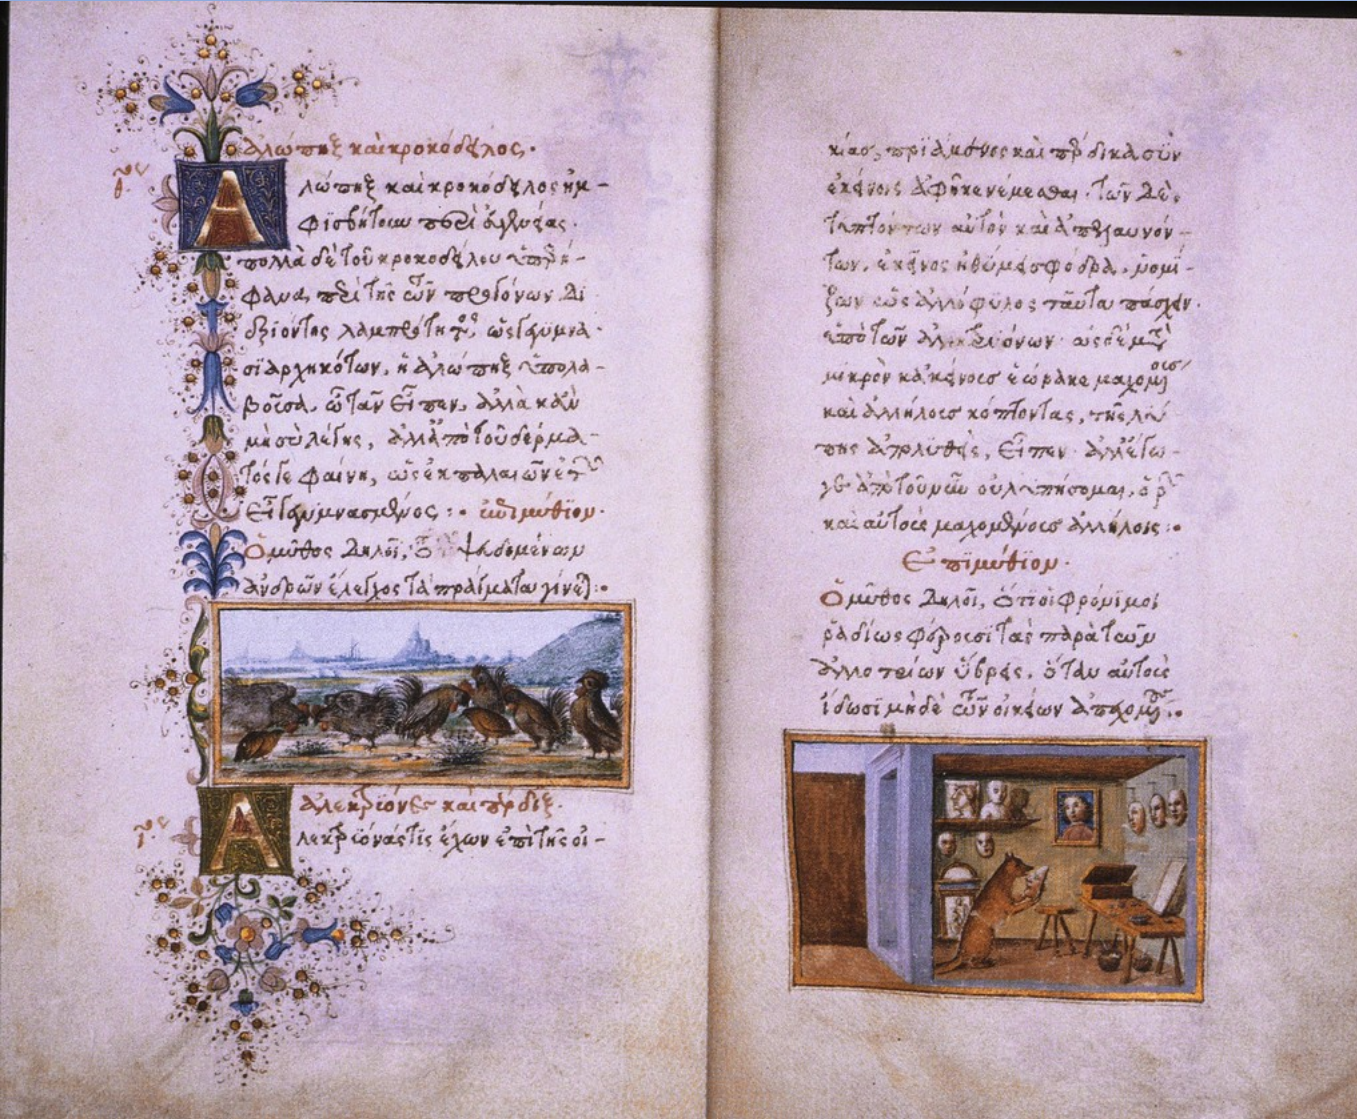 ἀλώπηξ καὶ κροκόδειλος.
Ἀλώπηξ καὶ κροκόδειλος ἠμ-
φισβήτουν περὶ εὐγενείας.
πολλὰ δὲ τοῦ κροκοδείλου ὑπερή-
φανα, περὶ τῆς τῶν προγόνων δι
εξιόντος λαμπρότητος, ὡς γεγυμνα-
σιαρχηκότων, ἡ ἀλώπηξ ὑπολα-
βοῦσα, ὦ τᾶν εἶπεν, ἀλλὰ κἂν
μὴ σὺ λέγῃς, ἀλλ' ἀπὸ τοῦ δέρμα-
τός γε φαίνῃ, ὡς ἐκ παλαιῶν ἐτῶν
εἶ γεγυμνασμένος: ἐπιμύθιον.
Ὁ μῦθος δηλοῖ, ὅτι ψευδομένων
ἀνδρῶν ἔλεγχος τὰ πράγματα γίνεται:
ἀλεκτρυόνες καὶ πέρδιξ.
Ἀλεκτρυόνας τις ἔχων ἐπὶ τῆς οἰ-
κίας, πριάμενος καὶ πέρδικα σὺν
ἐκείνοις ἀφῆκε νέμεσθαι. τῶν δὲ
τυπτόντων αὐτὸν καὶ ἀπελαυνόν-
των, ἐκεῖνος ἠθύμει σφόδρα, νομί-
ζων ὡς ἀλλόφυλος ταῦτα πάσχειν
ὑπὸ τῶν ἀλεκτρυόνων. ὡς δὲ μετὰ
μικρὸν κἀκείνους ἑώρακε μαχομένους
καὶ ἀλλήλους κόπτοντας, τῆς λύ
πης ἀπολυθείς, εἶπεν. ἀλλ' ἔγω-
γε ἀπὸ τοῦ νῦν οὐ λυπήσομαι, ὁρῶν
καὶ αὐτοὺς μαχομένους ἀλλήλοις:
Ἐπιμύθιον.
Ὁ μῦθος δηλοῖ, ὅτι οἱ φρόνιμοι
ῥᾳδίως φέρουσι τὰς παρὰ τῶν
ἀλλοτρίων ὕβρεις, ὅταν αὐτοὺς
ἴδωσι μηδὲ τῶν οἰκείων ἀπεχομένους: